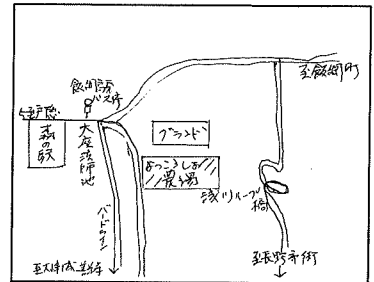 飯綱高原
バス停
至戸隠
森の駅
大座法師池
グランド
よっこらしょ
農場
浅川ループ
橋
バードライン
至飯綱町
至長野市街